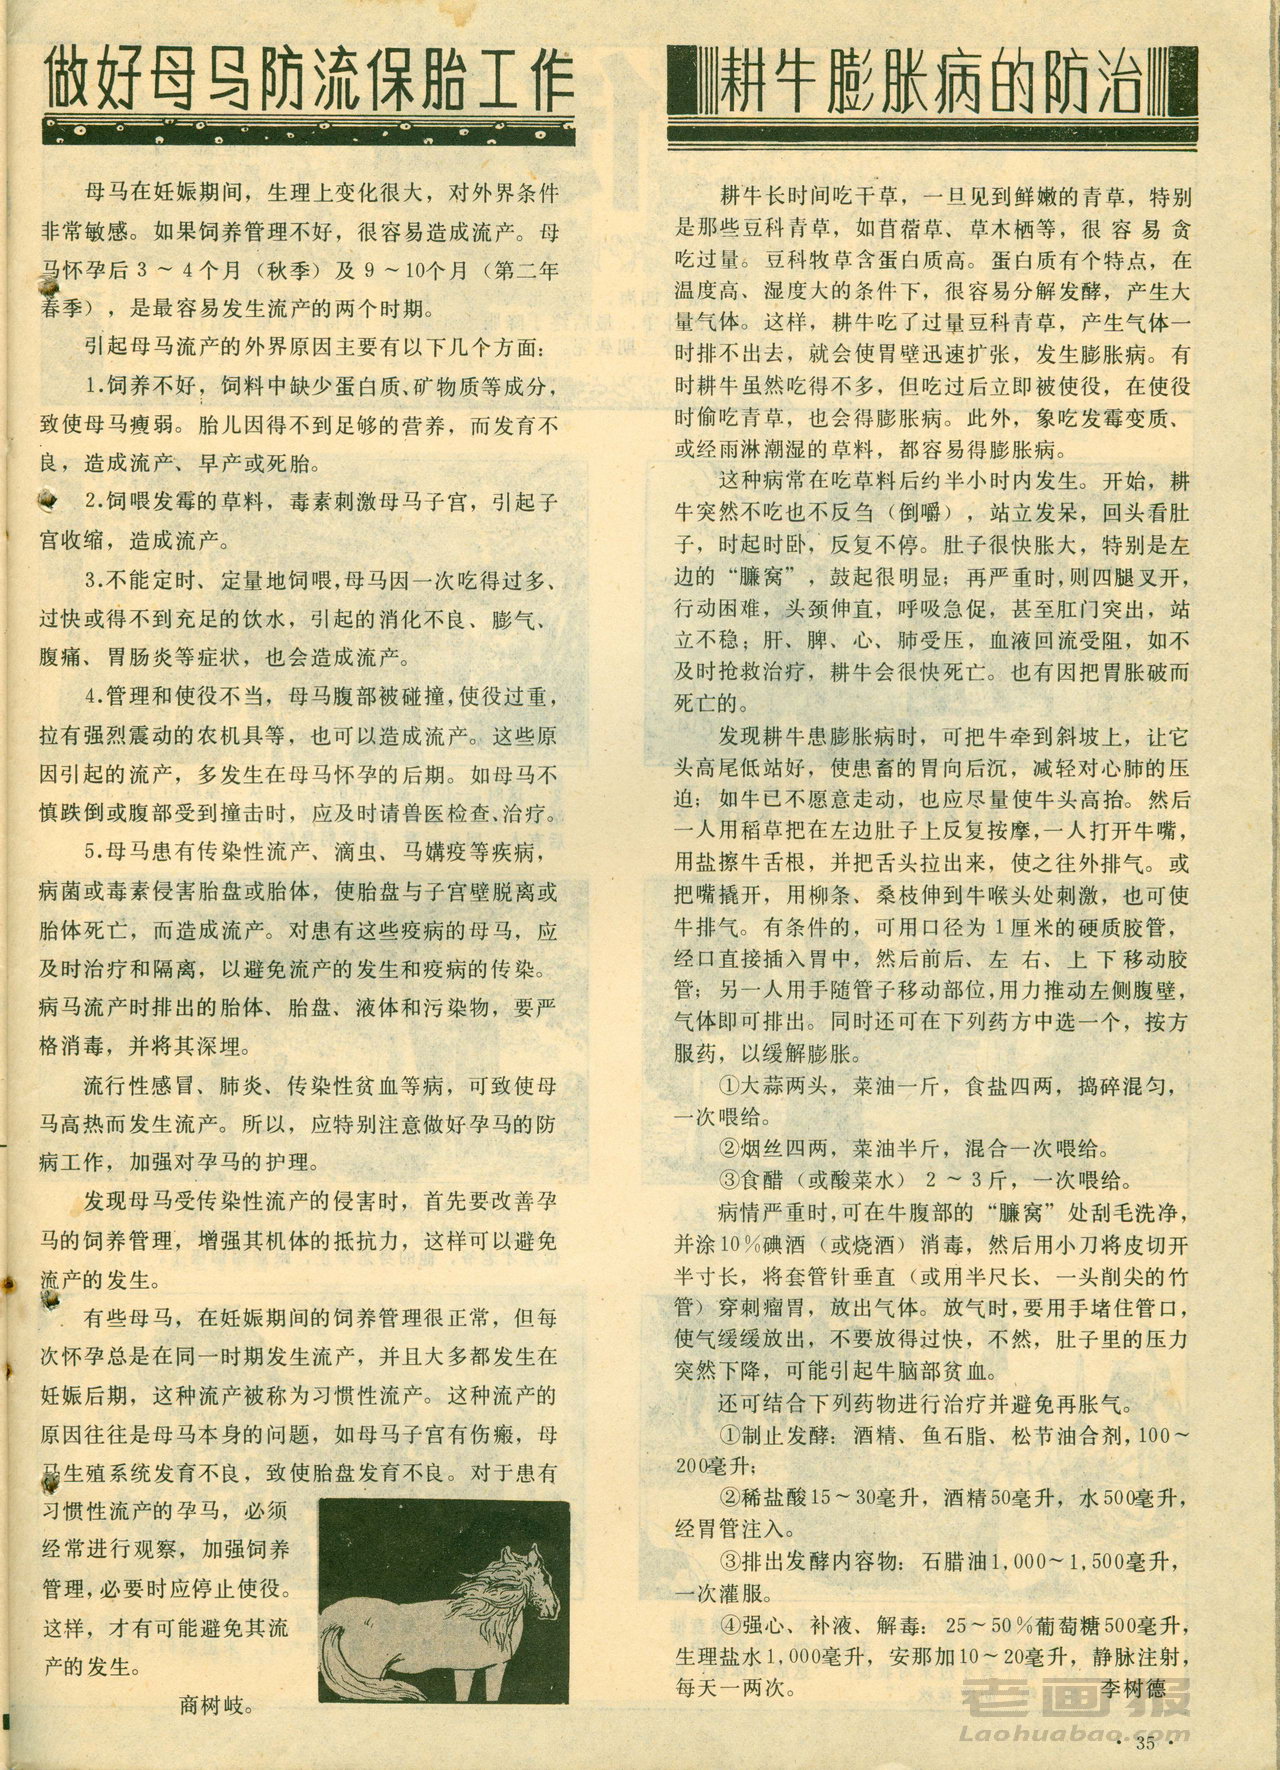 做好母马防流保胎工作
母马在妊娠期间，生理上变化很大，对外界条件
非常敏感。如果饲养管理不好，很容易造成流产。母
马怀孕后3～4个月（秋季）及9～10个月（第二年
春季），是最容易发生流产的两个时期。
引起母马流产的外界原因主要有以下几个方面：
1.饲养不好，饲料中缺少蛋白质、矿物质等成分，
致使母马瘦弱。胎儿因得不到足够的营养，而发育不
良，造成流产、早产或死胎。
2.饲喂发霉的草料，毒素刺激母马子宫，引起子
宫收缩，造成流产。
3.不能定时、定量地饲喂，母马因一次吃得过多、
过快或得不到充足的饮水，引起的消化不良、膨气、
腹痛、胃肠炎等症状，也会造成流产。
4.管理和使役不当，母马腹部被碰撞，使役过重，
拉有强烈震动的农机具等，也可以造成流产。这些原
因引起的流产，多发生在母马怀孕的后期。如母马不
慎跌倒或腹部受到撞击时，应及时请兽医检查、治疗。
5.母马患有传染性流产、滴虫、马媾疫等疾病，
病菌或毒素侵害胎盘或胎体，使胎盘与子宫壁脱离或
胎体死亡，而造成流产。对患有这些疫病的母马，应
及时治疗和隔离，以避免流产的发生和疫病的传染。
病马流产时排出的胎体、胎盘、液体和污染物，要严
格消毒，并将其深埋。
流行性感冒、肺炎、传染性贫血等病，可致使母
马高热而发生流产。所以，应特别注意做好孕马的防
病工作，加强对孕马的护理。
发现母马受传染性流产的侵害时，首先要改善孕
马的饲养管理，增强其机体的抵抗力，这样可以避免
流产的发生。
有些母马，在妊娠期间的饲养管理很正常，但每
次怀孕总是在同一时期发生流产，并且大多都发生在
妊娠后期，这种流产被称为习惯性流产。这种流产的
原因往往是母马本身的问题，如母马子宫有伤瘢，母
马生殖系统发育不良，致使胎盘发育不良。对于患有
习惯性流产的孕马，必须
经常进行观察，加强饲养
管理，必要时应停止使役。
这样，才有可能避免其流
产的发生。
商树岐。
耕牛膨胀病的防治
耕牛长时间吃干草，一旦见到鲜嫩的青草，特别
是那些豆科青草，如苜蓿草、草木栖等，很容易贪
吃过量。豆科牧草含蛋白质高。蛋白质有个特点，在
温度高、湿度大的条件下，很容易分解发酵，产生大
量气体。这样，耕牛吃了过量豆科青草，产生气体一
时排不出去，就会使胃壁迅速扩张，发生膨胀病。有
时耕牛虽然吃得不多，但吃过后立即被使役，在使役
时偷吃青草，也会得膨胀病。此外，象吃发霉变质、
或经雨淋潮湿的草料，都容易得膨胀病。
这种病常在吃草料后约半小时内发生。开始，耕
牛突然不吃也不反刍（倒嚼），站立发呆，回头看肚
子，时起时卧，反复不停。肚子很快胀大，特别是左
边的“臁窝”，鼓起很明显；再严重时，则四腿叉开，
行动困难，头颈伸直，呼吸急促，甚至肛门突出，站
立不稳；肝、脾、心、肺受压，血液回流受阻，如不
及时抢救治疗，耕牛会很快死亡。也有因把胃胀破而
死亡的。
发现耕牛患膨胀病时，可把牛牵到斜坡上，让它
头高尾低站好，使患畜的胃向后沉，减轻对心肺的压
迫；如牛已不愿意走动，也应尽量使牛头高抬。然后
一人用稻草把在左边肚子上反复按摩，一人打开牛嘴，
用盐擦牛舌根，并把舌头拉出来，使之往外排气。或
把嘴撬开，用柳条、桑枝伸到牛喉头处刺激，也可使
牛排气。有条件的，可用口径为1厘米的硬质胶管，
经口直接插入胃中，然后前后、左右、上下移动胶
管；另一人用手随管子移动部位，用力推动左侧腹壁，
气体即可排出。同时还可在下列药方中选一个，按方
服药，以缓解膨胀。
①大蒜两头，菜油一斤，食盐四两，捣碎混匀，
一次喂给。
②烟丝四两，菜油半斤，混合一次喂给。
③食醋（或酸菜水）2～3斤，一次喂给。
病情严重时，可在牛腹部的“臁窝”处刮毛洗净，
并涂10%碘酒（或烧酒）消毒，然后用小刀将皮切开
半寸长，将套管针垂直（或用半尺长、一头削尖的竹
管）穿刺瘤胃，放出气体。放气时，要用手堵住管口，
使气缓缓放出，不要放得过快，不然，肚子里的压力
突然下降，可能引起牛脑部贫血。
还可结合下列药物进行治疗并避免再胀气。
①制止发酵：酒精、鱼石脂、松节油合剂，100～
200毫升；
②稀盐酸15～30毫升，酒精50毫升，水500毫升，
经胃管注入。
③排出发酵内容物：石腊油1,000～1,500毫升，
一次灌服。
④强心、补液、解毒：25～50%葡萄糖500毫升，
生理盐水1,000毫升，安那加10～20毫升，静脉注射，
每天一两次。
李树德
老画报
Laohuabao.com
·35·